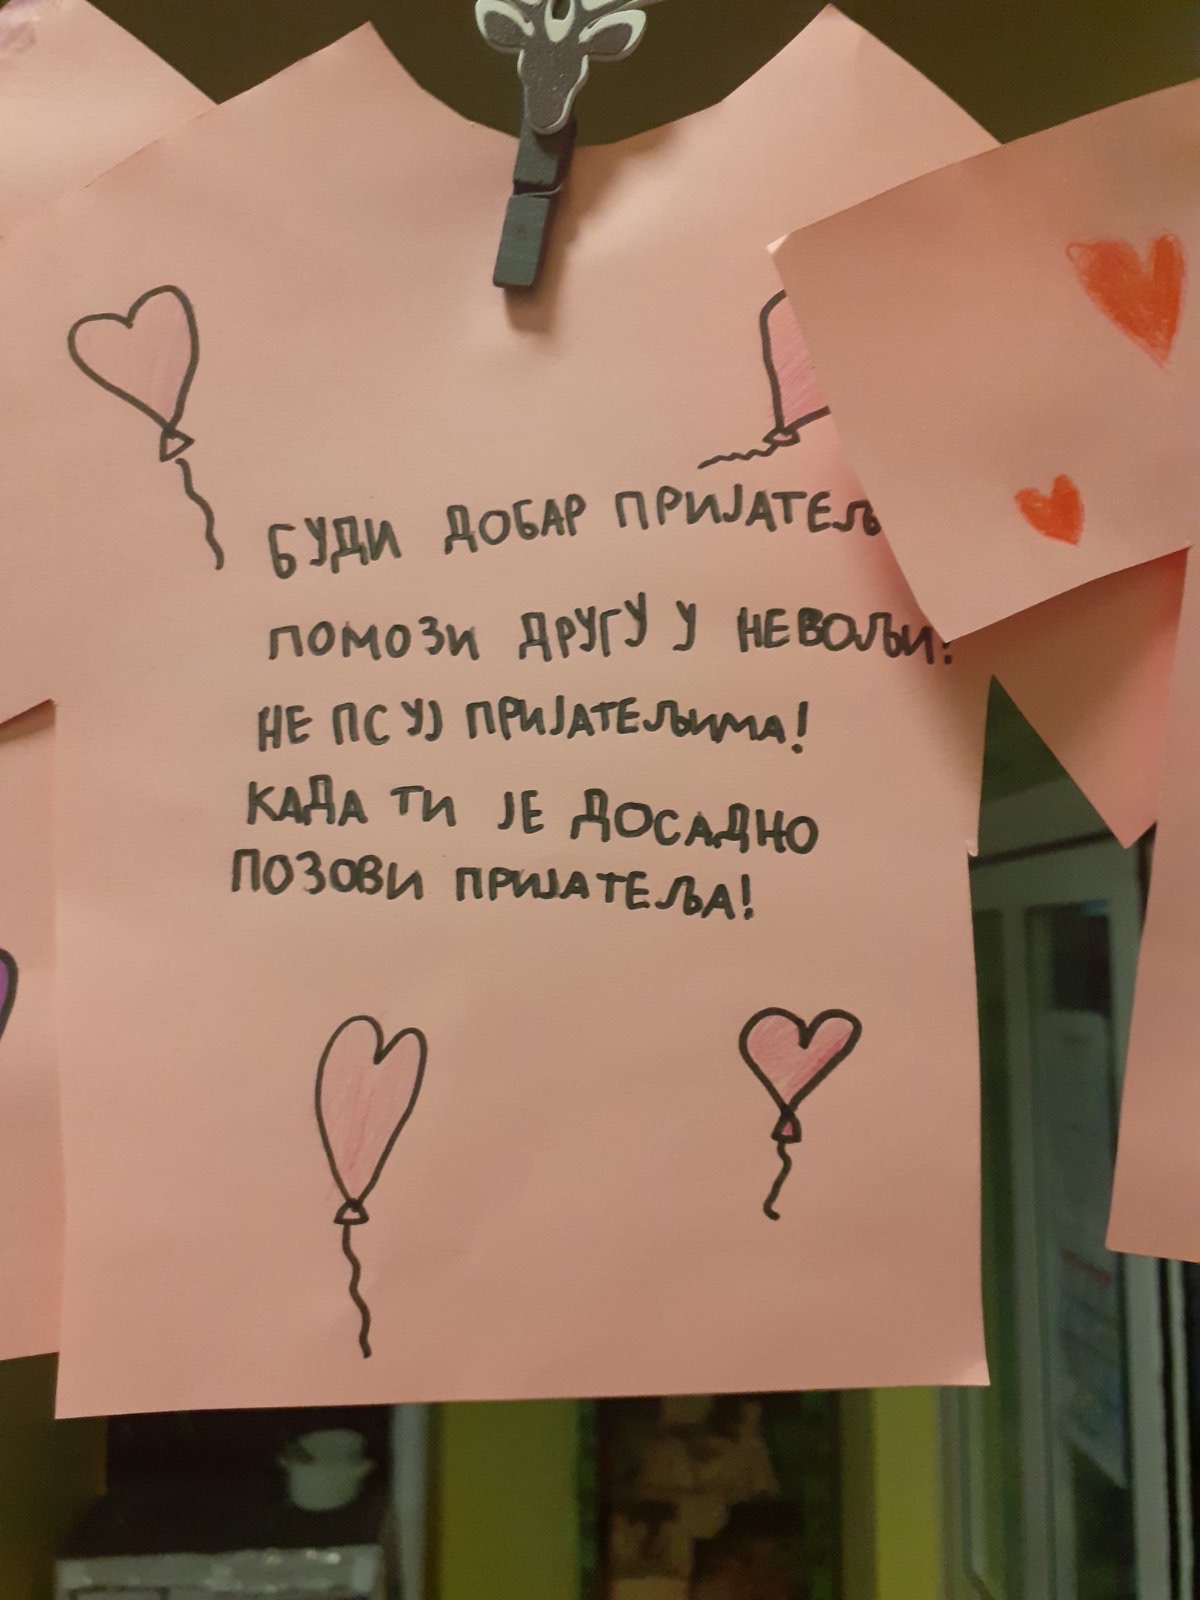 БУДИ ДОБАР ПРИЈАТЕЉ
ПОМОЗИ ДРУГУ У НЕВОЉИ!
НЕ ПСУЈ ПРИЈАТЕЉИМА!
КАДА ТИ ЈЕ ДОСАДНО
ПОЗОВИ ПРИЈАТЕЉА!